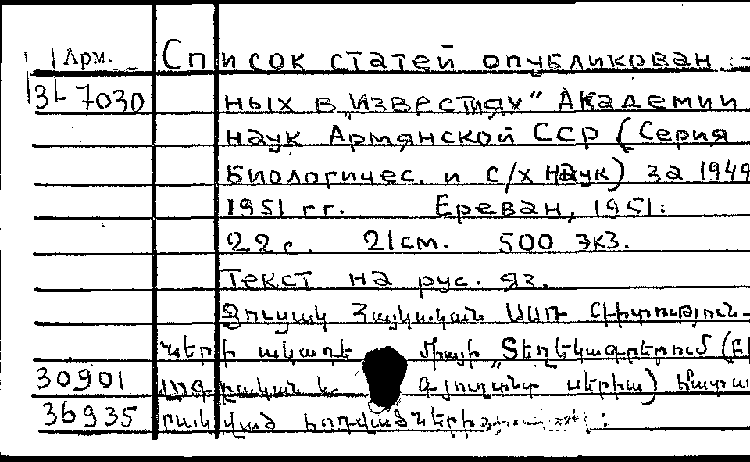 Арм. Список статей опубликован-
3Ь 7030 ных в „Известиях" Академии
наук Армянской ССР (Серия
Биологичес. и с/х наук) за 1949
1951 гг. Ереван, 1951.
22 с. 21 см. 500 экз.
Текст на рус. яз.
Ցուցակ Հայկական ՍՍՌ Գիտություն-
ների „Տեղեկագրերում
30901
36935 հոդվածների